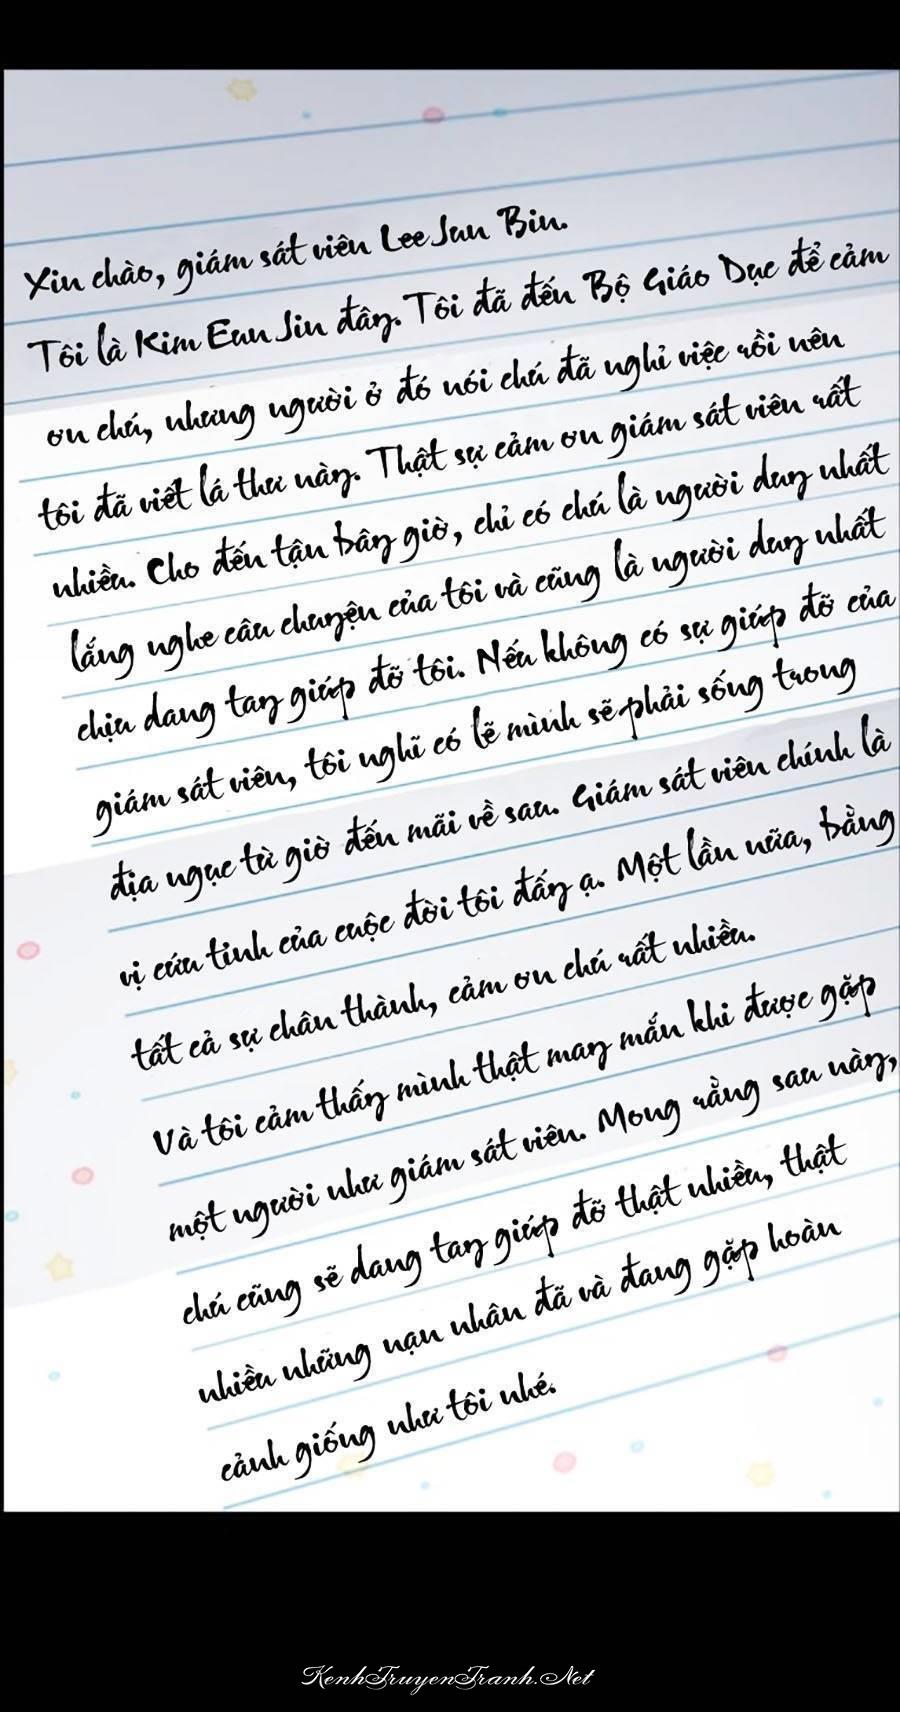 Xin chào, giám sát viên Lee Jun Bin.
Tôi là Kim Eun Jin đây. Tôi đã đến Bộ Giáo Dục để cảm
ơn chú, nhưng người ở đó nói chú đã nghỉ việc rồi nên
tôi đã viết lá thư này. Thật sự cảm ơn giám sát viên rất
nhiều. Cho đến tận bây giờ, chỉ có chú là người duy nhất
lắng nghe câu chuyện của tôi và cũng là người duy nhất
chịu dang tay giúp đỡ tôi. Nếu không có sự giúp đỡ của
giám sát viên, tôi nghĩ có lẽ mình sẽ phải sống trong
địa ngục từ giờ đến mãi về sau. Giám sát viên chính là
vị cứu tinh của cuộc đời tôi đấy ạ. Một lần nữa, bằng
tất cả sự chân thành, cảm ơn chú rất nhiều.
Và tôi cảm thấy mình thật may mắn khi được gặp
một người như giám sát viên. Mong rằng sau này,
chú cũng sẽ dang tay giúp đỡ thật nhiều, thật
nhiều những nạn nhân đã và đang gặp hoàn
cảnh giống như tôi nhé.
KenhTruyenTranh.Net